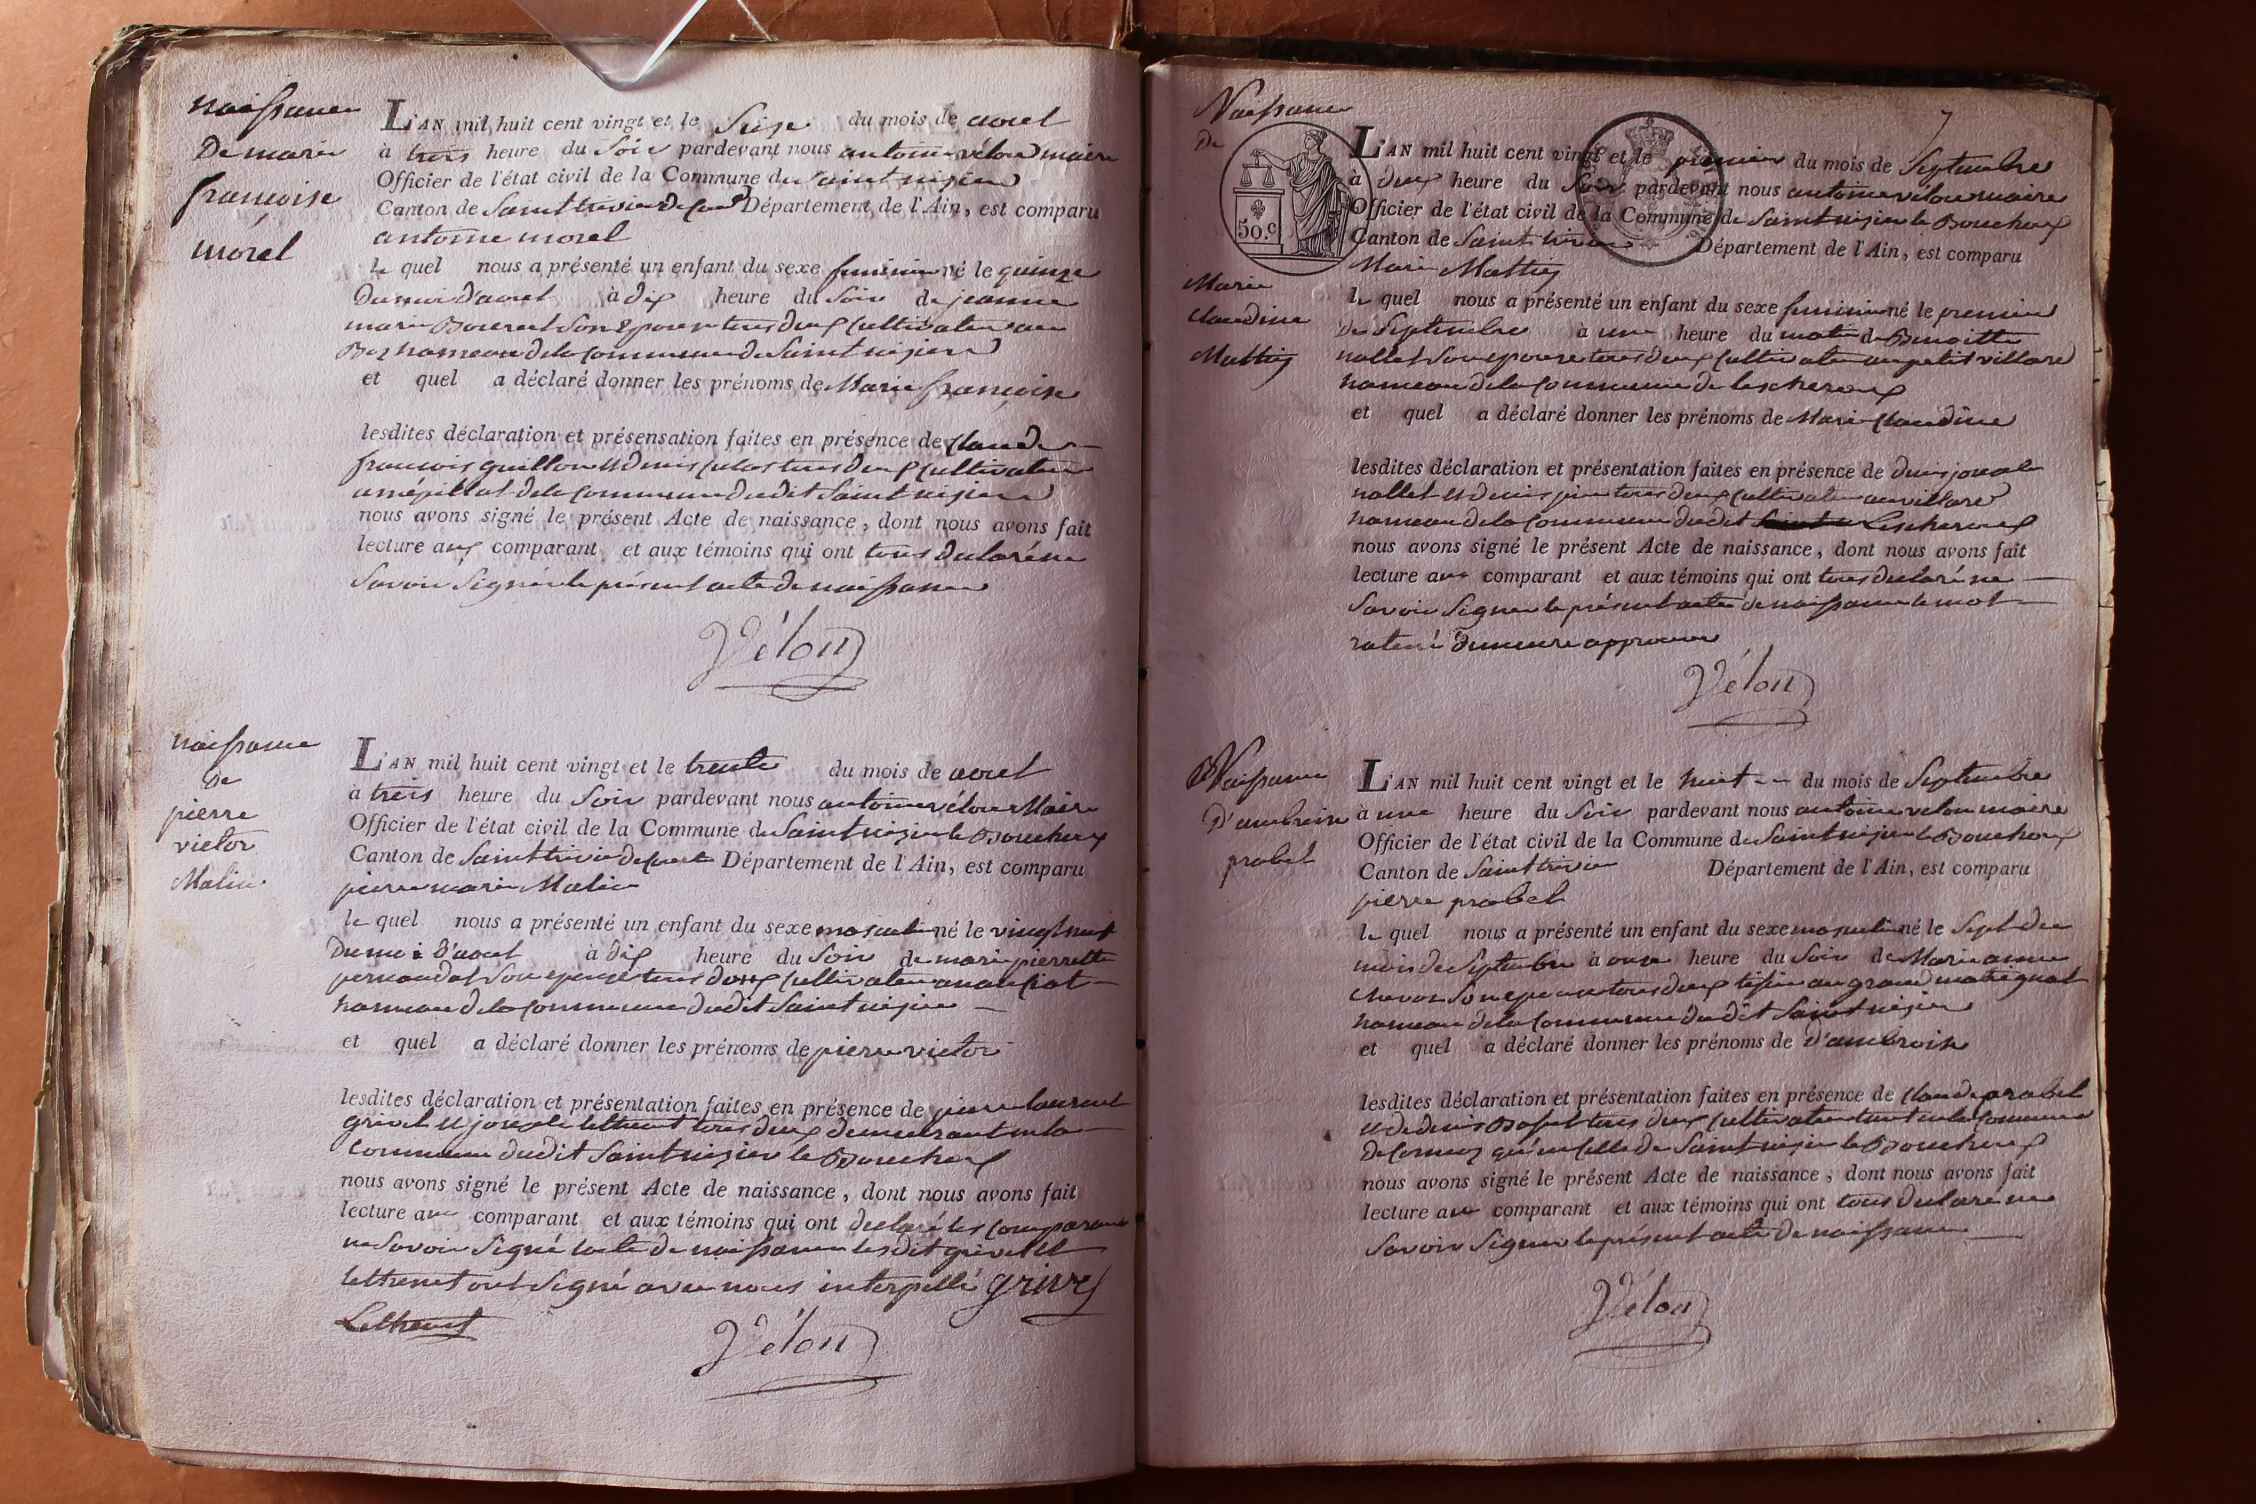 naissance
De marie
françoise
morel
L'AN mil huit cent vingt et le Seize du mois de aout
à trois heure du Soir pardevant nous antoine vélon maire
Officier de l'état civil de la Commune de Saint nizier
Canton de Saint trivier de Département de l'Ain, est comparu
antoine morel
le quel nous a présenté un enfant du sexe feminin né le quinze
Du moi D'aout à dix heure du Soir de jeanne
marie Son Epouse tous deux Cultivateur au
hameau de la Commune de Saint nizier
et quel a déclaré donner les prénoms de Marie françoise
lesdites déclaration et présensation faites en présence de Claude
françois guillon et denis tous deux Cultivateur
de la Commune dudit Saint nizier
nous avons signé le présent Acte de naissance, dont nous avons fait
lecture aux comparant et aux témoins qui ont tous declaré ne
Savoir Signer le présent acte de naissance
Vélon
naissance
de
pierre
victor
Malin
L'AN mil huit cent vingt et le trente du mois de aout
à trois heure du Soir pardevant nous antoine vélon Maire
Officier de l'état civil de la Commune de Saint nizier le Bouchoux
Canton de Saint trivier de Court Département de l'Ain, est comparu
pierre marie Malin
le quel nous a présenté un enfant du sexe masculin né le vingt huit
Du moi d'aout à dix heure du Soir de marie pierrette
Son epouse tous deux Cultivateur
hameau de la Commune dudit Saint nizier
et quel a déclaré donner les prénoms de pierre victor
lesdites déclaration et présentation faites en présence de pierre laurent
grivel et joseph lethenet tous deux demeurant en la
Commune dudit Saint nizier le Bouchoux
nous avons signé le présent Acte de naissance, dont nous avons fait
lecture aux comparant et aux témoins qui ont declaré les comparant
ne Savoir Signé lacte de naissance lesdit grivel et
lethenet ont Signé avec nous interpellé grivel
Lethenet
Vélon
7
Naissance
de
Marie
Claudine
Mathy
50.c
L'AN mil huit cent vingt et le premier du mois de Septembre
à deux heure du Soir pardevant nous antoine vélon maire
Officier de l'état civil de la Commune de Saint nizier le Bouchoux
Canton de Saint trivier Département de l'Ain, est comparu
Marie Mathy
le quel nous a présenté un enfant du sexe feminin né le premier
de Septembre à une heure du matin de Benoitte
nallet Son epouse tous deux Cultivateur au petit villard
hameau de la Commune de lescheroux
et quel a déclaré donner les prénoms de Marie Claudine
lesdites déclaration et présentation faites en présence de
nallet et denis tous deux Cultivateur au villard
hameau de la Commune dudit Lescheroux
nous avons signé le présent Acte de naissance, dont nous avons fait
lecture aux comparant et aux témoins qui ont tous declaré ne
Savoir Signer le présent acte de naissance le mot
raturé demeure approuver
Vélon
Naissance
D'ambroise
probel
L'AN mil huit cent vingt et le huit du mois de Septembre
à une heure du Soir pardevant nous antoine velon maire
Officier de l'état civil de la Commune de Saint nizier le Bouchoux
Canton de Saint trivier Département de l'Ain, est comparu
pierre probel
le quel nous a présenté un enfant du sexe masculin né le Sept du
mois de Septembre à onze heure du Soir de Marie anne
Son epouse tous deux au grand
hameau de la Commune dudit Saint nizier
et quel a déclaré donner les prénoms de d'ambroise
lesdites déclaration et présentation faites en présence de Claude probel
et de denis tous deux Cultivateur tant en la Commune
de Cormoz qu'en celle de Saint nizier le Bouchoux
nous avons signé le présent Acte de naissance, dont nous avons fait
lecture aux comparant et aux témoins qui ont tous declaré ne
Savoir Signer le présent acte de naissance
Vélon